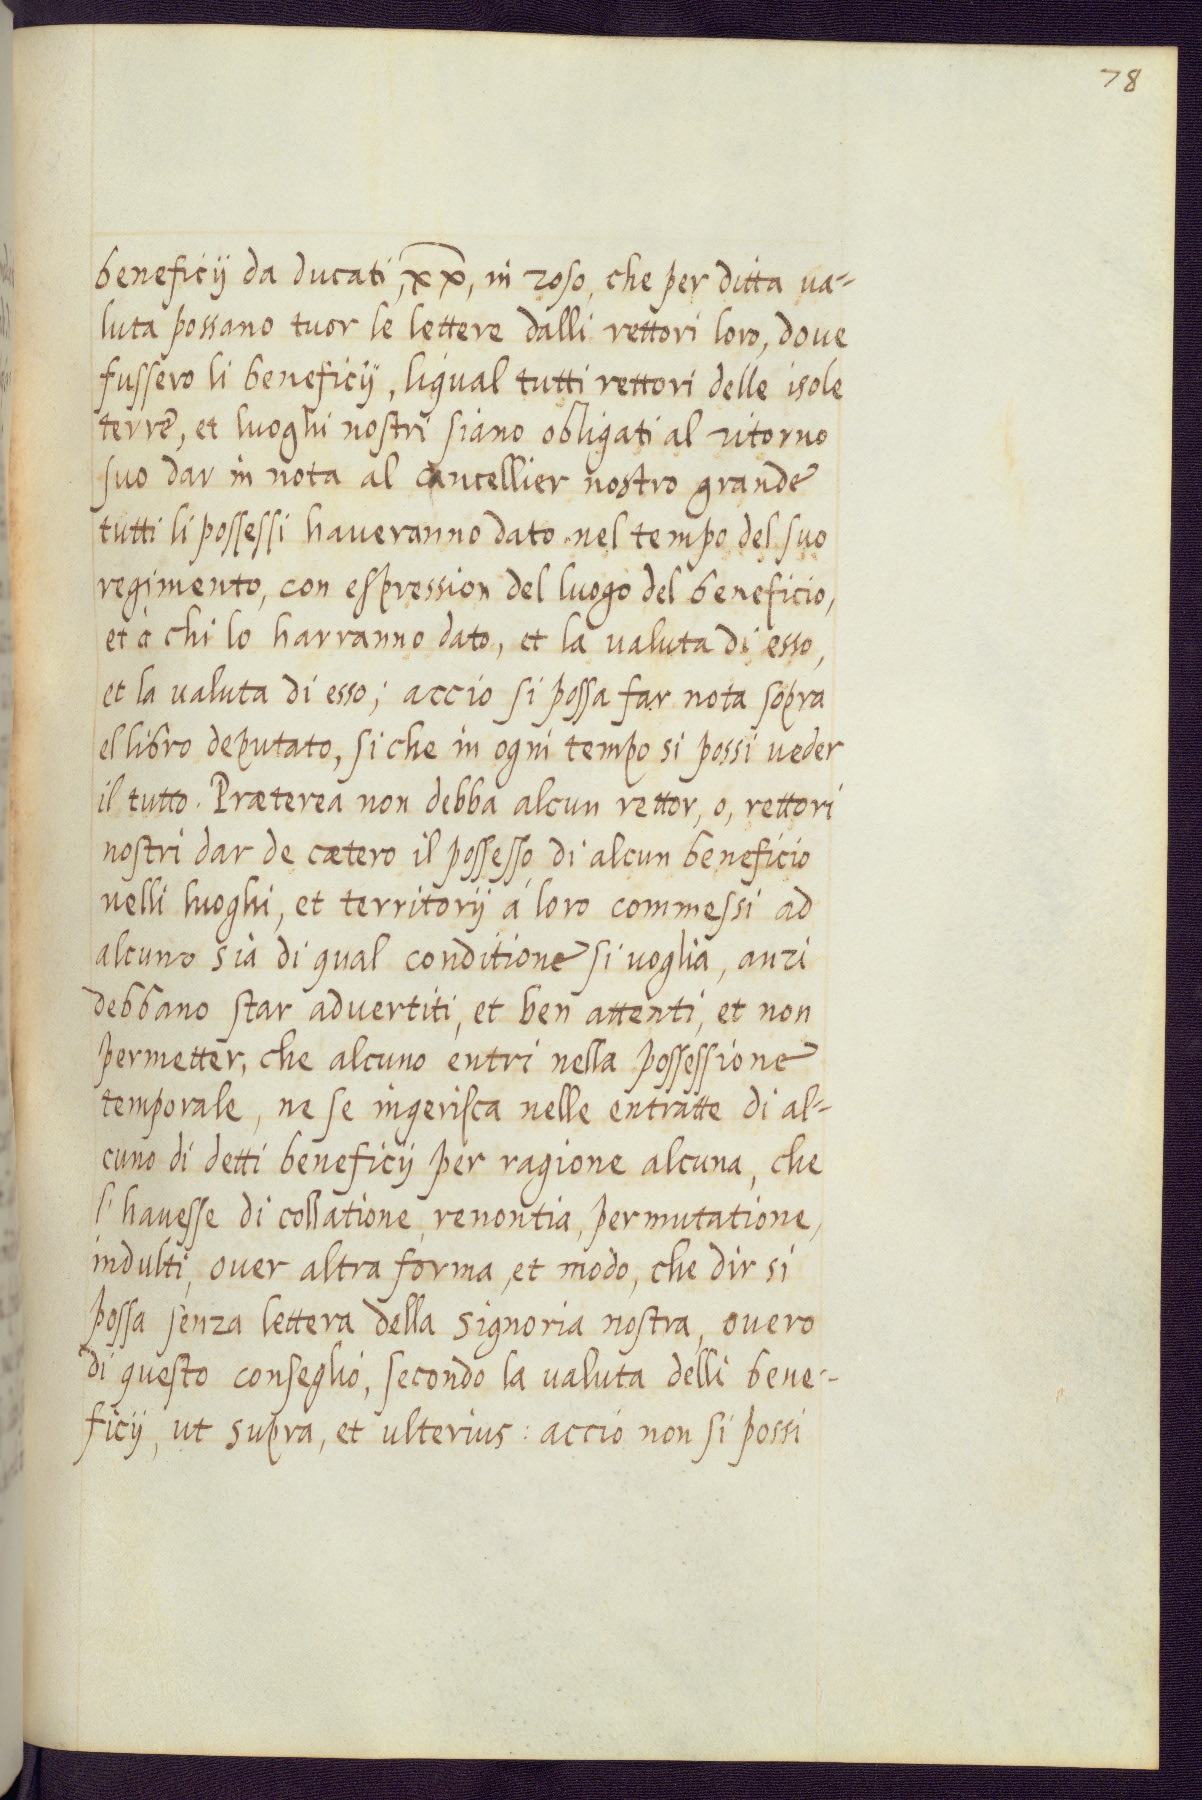 78
beneficij da ducati, xx, in zoso, che per ditta va-
luta possano tuor le lettere dalli rettori loro, dove
fussero li beneficij, liqual tutti rettori delle isole
terre, et luoghi nostri siano obligati al ritorno
suo dar in nota al cancellier nostro grande
tutti li possessi haveranno dato nel tempo del suo
regimento, con espression del luogo del beneficio,
et à chi lo harranno dato, et la valuta di esso,
et la valuta di esso; accio si possa far nota sopra
el libro deputato, si che in ogni tempo si possi veder
il tutto. Præterea non debba alcun rettor, o, rettori
nostri dar de cætero il possesso di alcun beneficio
nelli luoghi, et territorij à loro commessi ad
alcuno sia di qual conditione si voglia, anzi
debbano star advertiti, et ben attenti, et non
permetter, che alcuno entri nella possessione
temporale, ne se ingerisca nelle entratte di al-
cuno di detti beneficij per ragione alcuna, che
l'havesse di collatione, renontia, permutatione,
indulti, over altra forma, et modo, che dir si
possa senza lettera della Signoria nostra, overo
di questo conseglio, secondo la valuta delli bene-
ficij, ut supra, et ulterius: acciò non si possi